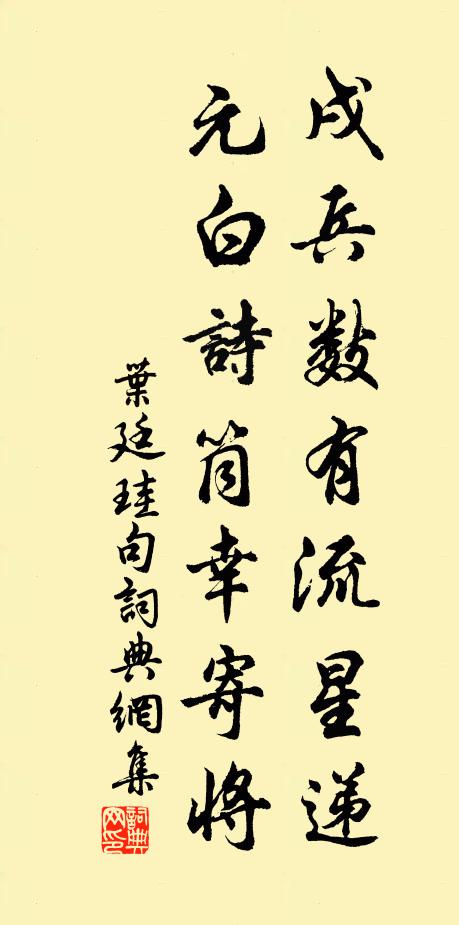 戍兵数有流星递
元白詩筒幸寄將
葉廷珪句詞典網集
詞典网印